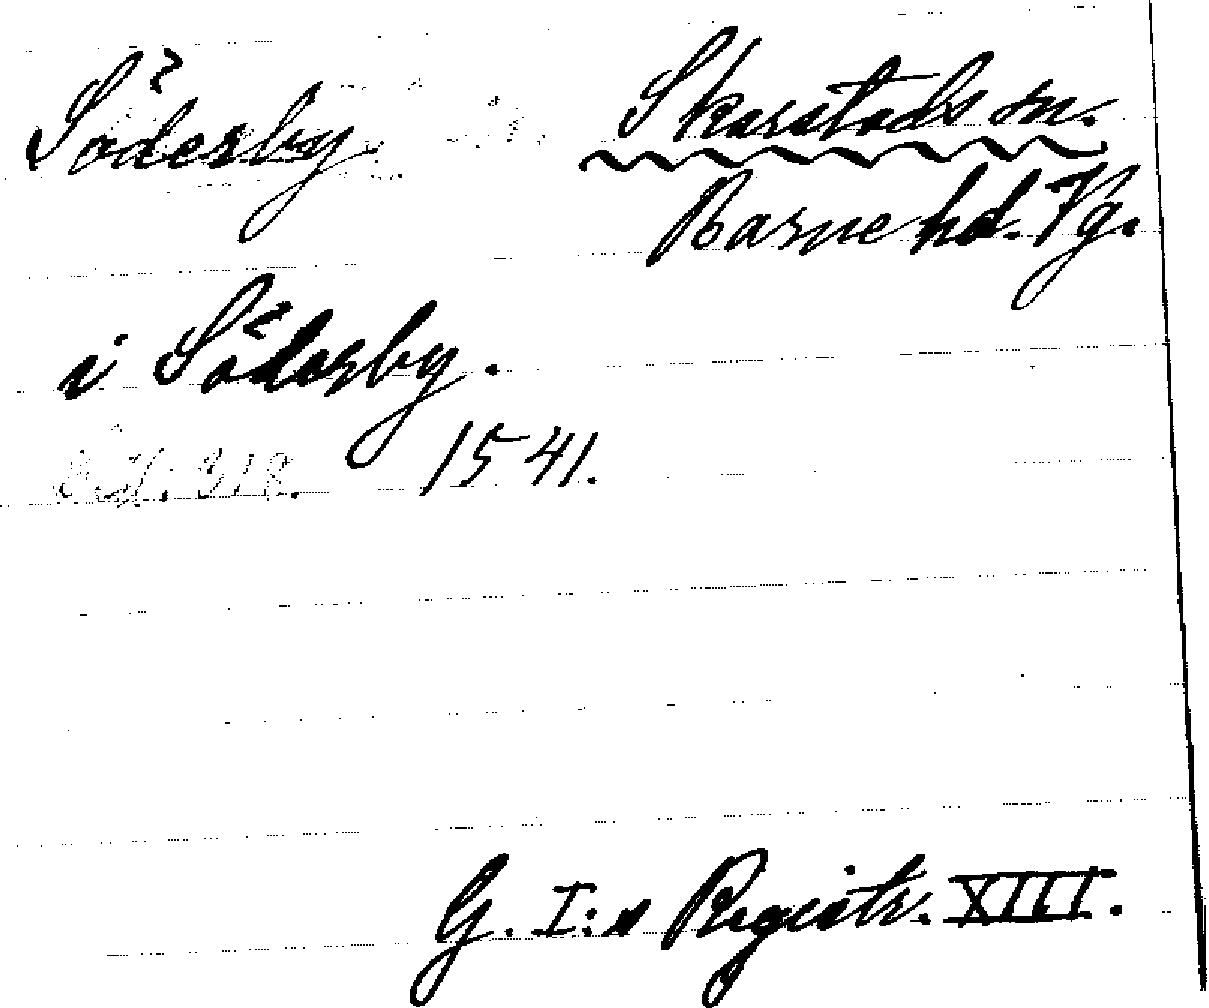 Söderby Skarstads sn.
Barne hd. Vg.
i Söderby.
1541.
G. I:s Registr. XIII.